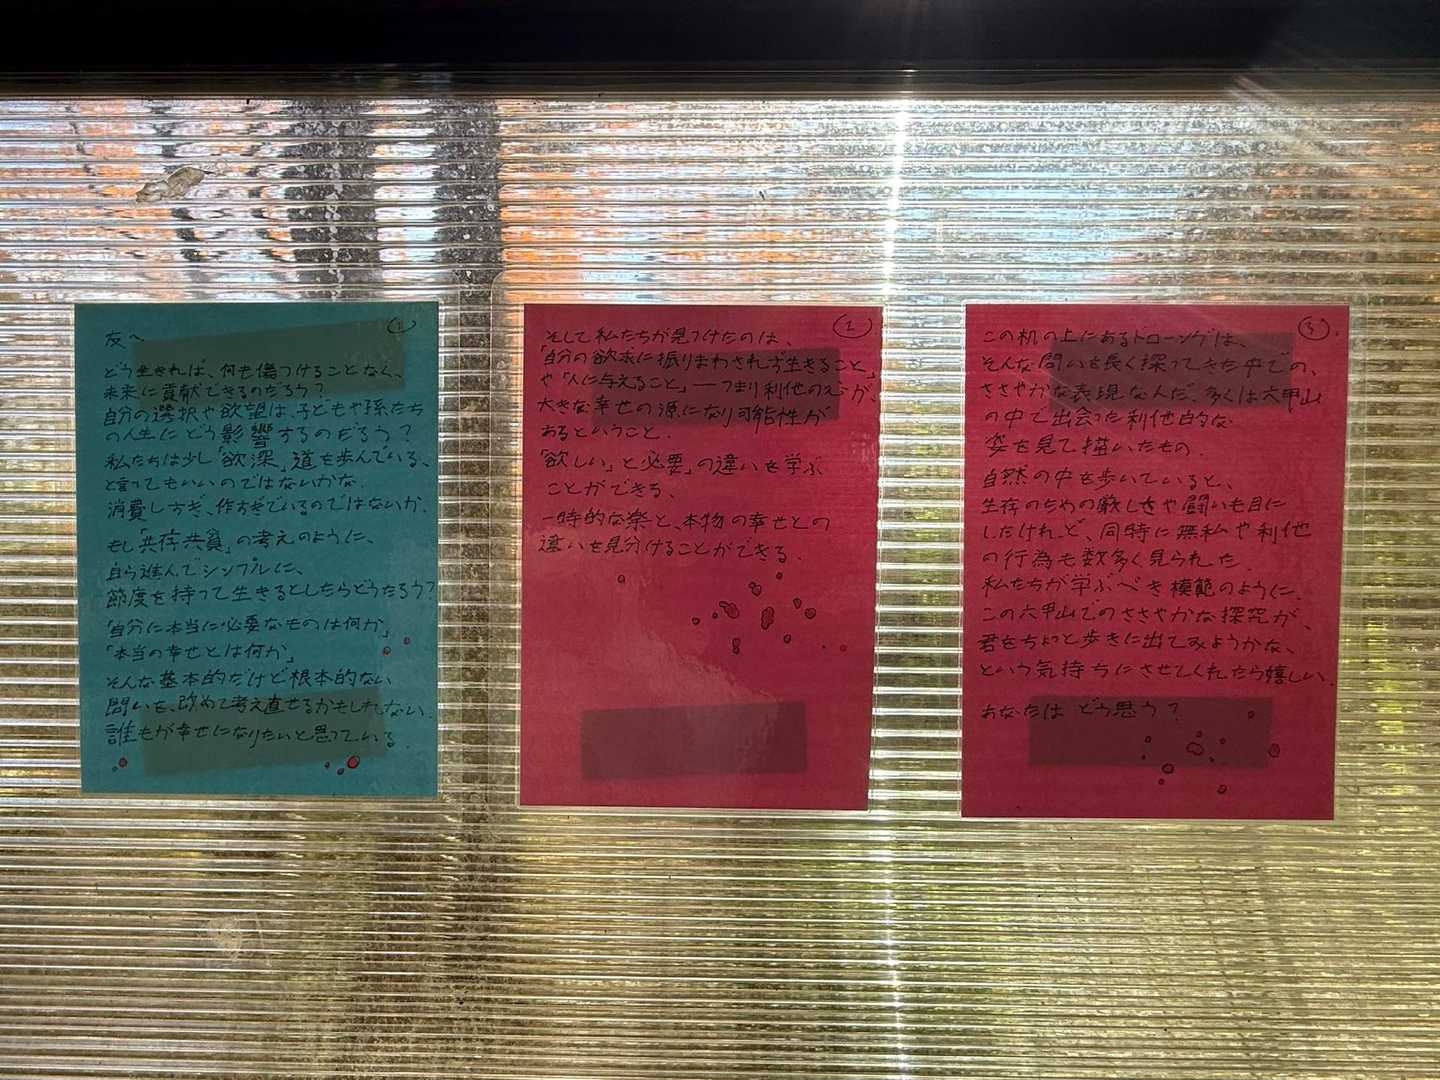 ①
友へ
どう生きれば、何も傷つけることなく、
未来に貢献できるのだろう？
自分の選択や欲望は、子どもや孫たち
の人生にどう影響するのだろう？
私たちは少し「欲深」道を歩んでいる、
と言ってもいいのではないかな。
消費しすぎ、作りすぎているのではないか。
もし「共存共貧」の考えのように、
自ら進んでシンプルに、
節度を持って生きるとしたらどうだろう？
「自分に本当に必要なものは何か」
「本当の幸せとは何か」
そんな基本的だけど根本的な
問いを、改めて考え直せるかもしれない。
誰もが幸せになりたいと思っている。
②
そして私たちが見つけたのは、
「自分の欲求に振りまわされず生きること」
や「人に与えること」―つまり利他の心が、
大きな幸せの源になり可能性が
あるということ。
「欲しい」と「必要」の違いを学ぶ
ことができる。
一時的な楽と、本物の幸せとの
違いを見分けることができる。
③
この机の上にあるドローングは、
そんな問いを長く探ってきた中での、
ささやかな表現なんだ。多くは六甲山
の中で出会った利他的な
姿を見て描いたもの。
自然の中を歩いていると、
生存のための厳しさや闘いも目に
したけれど、同時に無私や利他
の行為も数多く見られた。
私たちが学ぶべき模範のように。
この六甲山でのささやかな探究が、
君をちょっと歩きに出てみようかな、
という気持ちにさせてくれたら嬉しい。
あなたは どう思う？